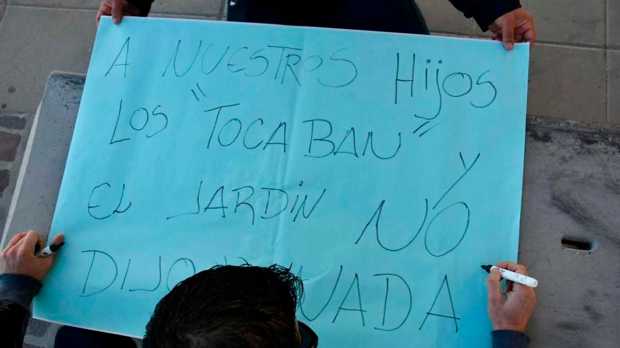 A NUESTROS HijOS
LOS "TOCABAN"
EL JARDIN NO Y
DIJO NADA